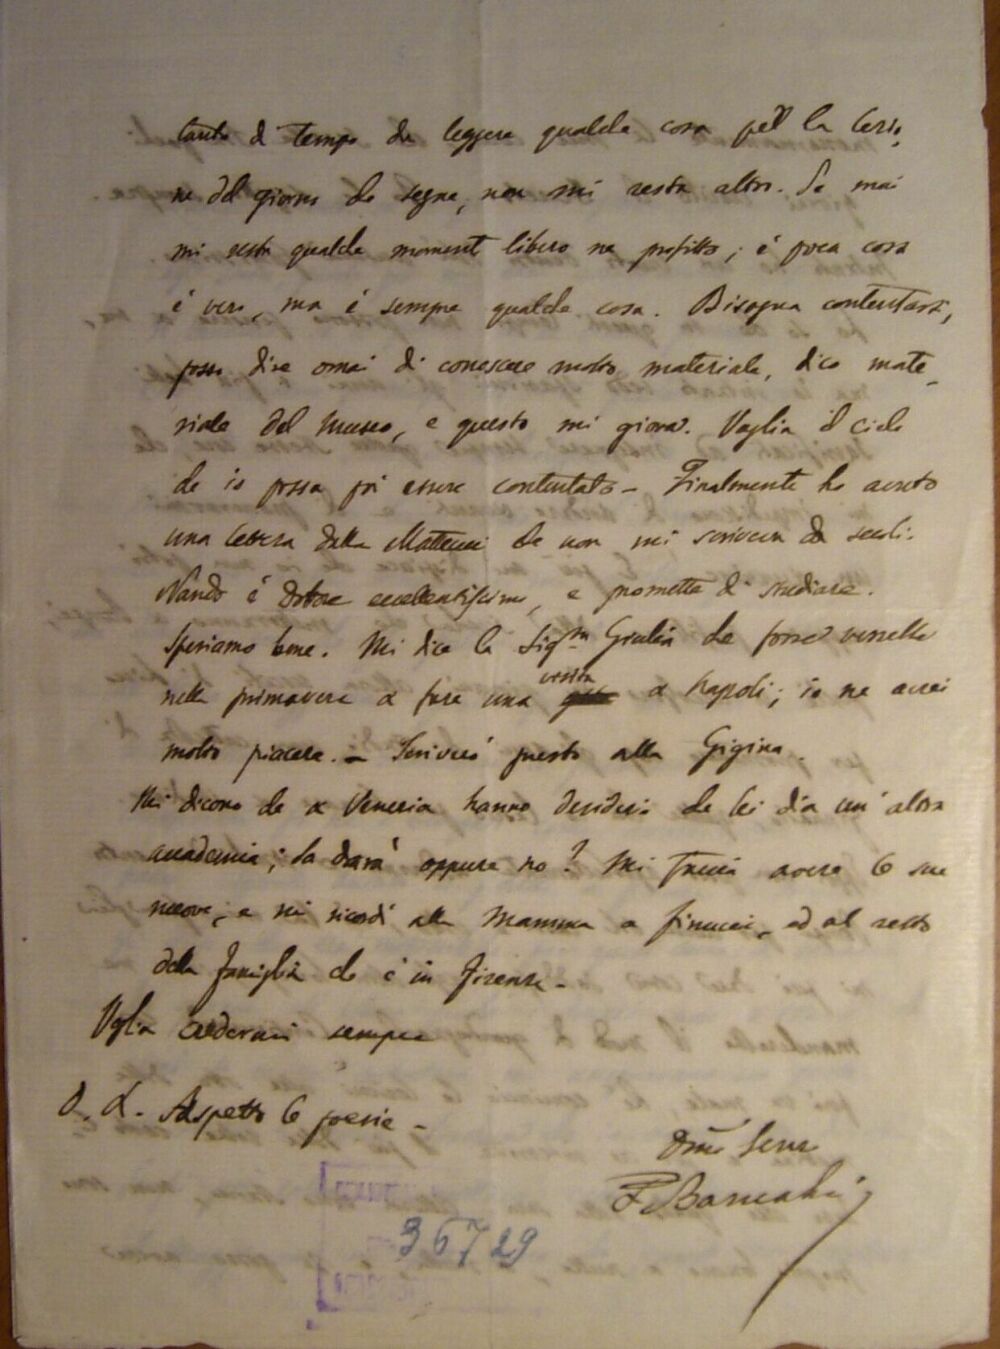 tanto di tempo da leggere qualche cosa per la lezio-
ne del giorno che segue, non mi resta altro. Se mai
mi resta qualche momento libero ne profitto; è poca cosa
è vero, ma è sempre qualche cosa. Bisogna contentarsi,
posso dire omai di conoscere molto materiale, dico mate-
riale del Museo, e questo mi giova. Voglia il cielo
che io possa poi essere contentato – Finalmente ho avuto
una lettera dalla Matteucci che non mi scriveva da secoli.
Nando è dottore eccellentissimo, e promette di studiare.
Speriamo bene. Mi dice la Sigra Giulia che forse verrebbe
nella primavera a fare una visita a Napoli; io ne avrei
molto piacere. – Scriverò presto alla Gigina.
Mi dicono che a Venezia hanno desiderio che lei dia un' altra
accademia; la darà oppure no? Mi faccia avere le sue
nuove, e mi ricordi alla Mamma a , ed al resto
della famiglia che è in Firenze –
Voglia credermi sempre
Aspetto le poesie –
Servo
F Barnabei
36729